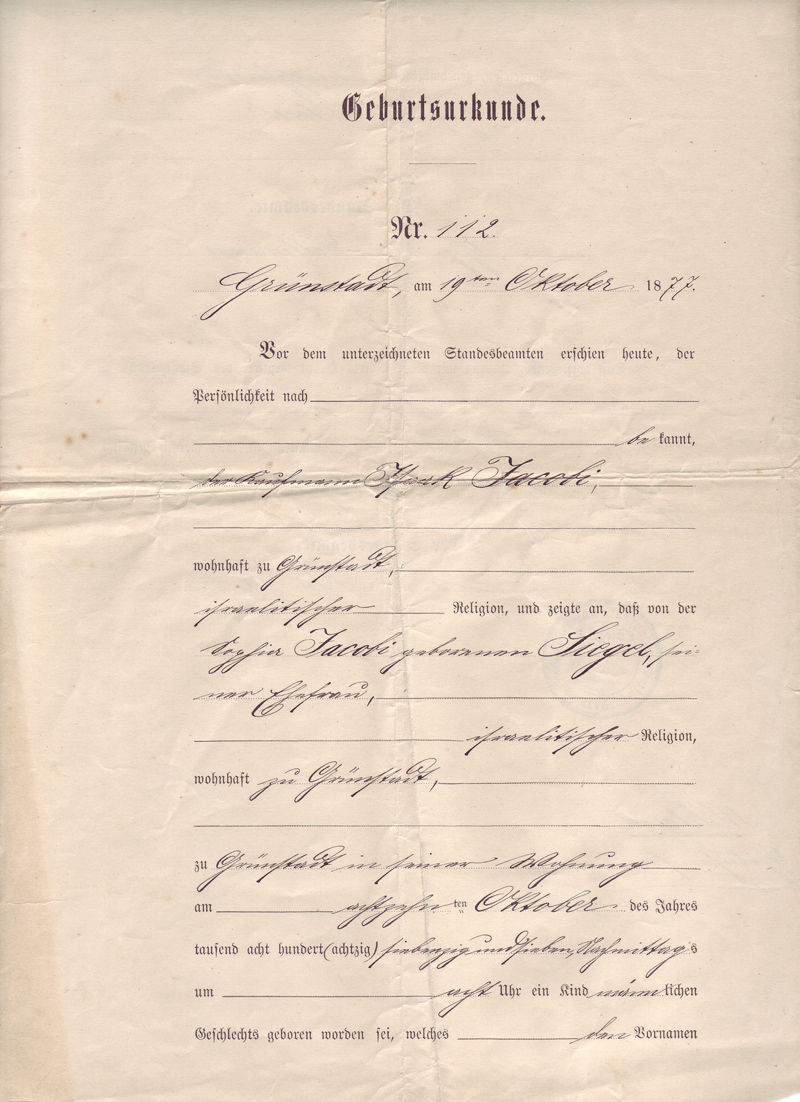 Geburtsurkunde.
Nr. 112.
Grünstadt, am 19ten Oktober 1877.
Vor dem unterzeichneten Standesbeamten erschien heute, der
Persönlichkeit nach
be kannt,
der Kaufmann Jacobi,
wohnhaft zu Grünstadt,
israelitischer Religion, und zeigte an, daß von der
Sophia Jacobi geborenen Siegel, sei-
ner Ehefrau,
israelitischer Religion,
wohnhaft zu Grünstadt,
zu Grünstadt in seiner Wohnung
am achtzehn ten Oktober des Jahres
tausend acht hundert (achtzig) siebenzig und sieben, Nachmittags
um acht Uhr ein Kind männlichen
Geschlechts geboren worden sei, welches den Vornamen